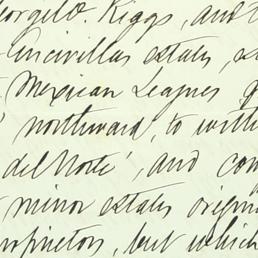 George W. Riggs, and
Encinillas estates,
Mexican Leagues
northward, to with
del Norte', and com
minor estates origin
but which